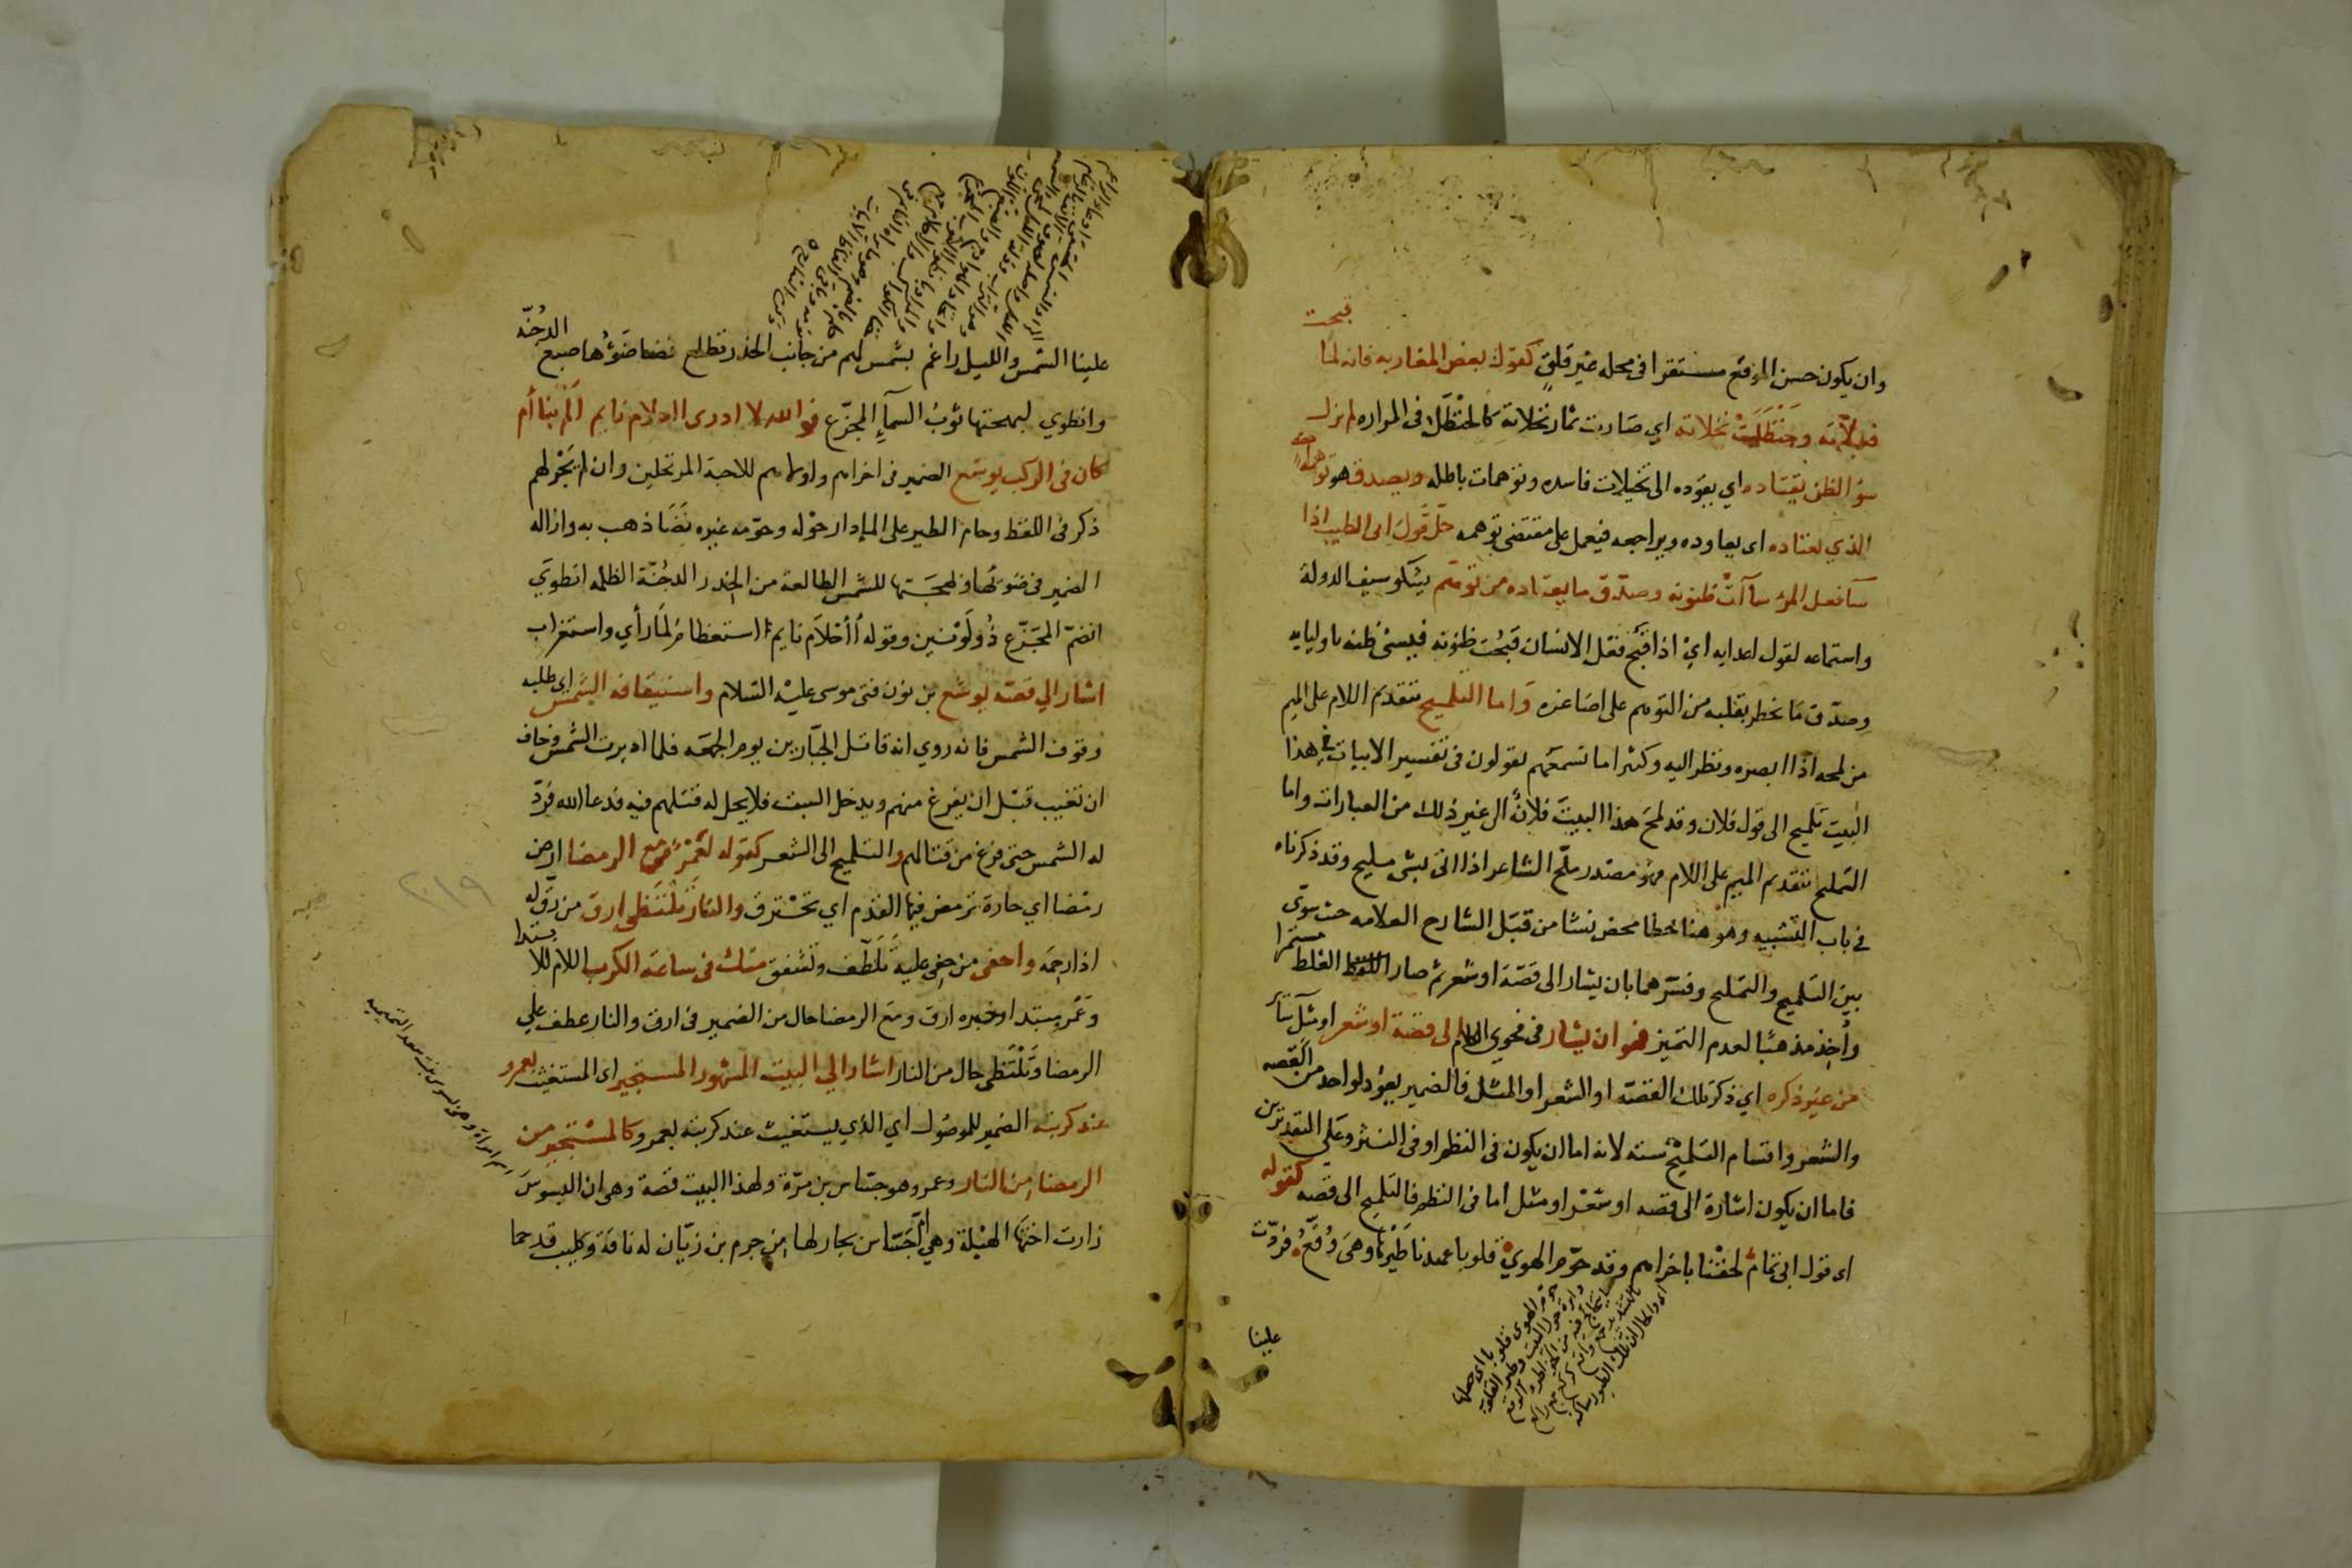 وان يكون حسن الموقع مستقرا في محله غير قلق كقول بعض المغاربه فانه لما قبحت
فعلاته وحنظلت نخلاته اي صارت ثمار نخلاته كالحنظل في المراره لم يزل
سؤ الظن يقتاده اي يقوده الى تخيلات فاسده وتوهمات باطله ويصدق هو توهمه
الذي يعتاده اى يعاوده ويراجعه فيعمل على مقتضى توهمه حل قول ابى الطيب اذا
سآ فعل المرء سآات ظنونه وصدق ما يعتاده من توهم يشكو سيف الدولة
واستماعه لقول اعدايه اي اذا قبح فعل الانسان قبحت ظنونه فيسئ ظنه باوليايه
وصدق ما يخطر بقلبه من التوهم على اصاغره واما التلميح بتقديم اللام على الميم
من لمحه اذا ابصره ونظر اليه وكثيرا ما تسمعهم يقولون في تفسير الابيات في هذا
البيت تلميح الى قول فلان وقد لمح هذا البيت فلان الى غير ذلك من العبارات واما
التمليح بتقديم الميم على اللام فهو مصدر ملّح الشاعر اذا اتى بشى مليح وقد ذكرناه
في باب التشبيه وهو هنا خطا محض نشا من قبل الشارح العلامه حيث سوّى
بين التلميح والتمليح وفسرهما بان يشار الى قصة او شعر ثم صار الغلط مستمرا
وأخذ مذهبا لعدم التميز فهو ان يشار في فحوى الكلام الى قصة او شعر او مثل سآئر
من غير ذكره اي ذكر تلك القصة او الشعر او المثل فالضمير يعود لواحد من القصه
والشعر واقسام التلميح ستة لانه اما ان يكون في النظم او في النثر وعلى التقديرين
فاما ان يكون اشارة الى قصه او شعر او مثل اما في النظم فالتلميح الى قصه كقوله
اى قول ابى تمام لحقنا باخراهم وقد حوّم الهوي قلوبا عهدنا طيرها وهى وقّع فردّت
علينا
علينا الشمس والليل راغم بشمس لهم من جانب الخدر تطلع نضا ضؤها صبغ الدجنّه
وانطوي لبهجتها ثوب السمآء المجزّع فوالله لا ادرى ااحلام نايم المت بنا أم
كان في الركب يوشع الضمير في اخراهم ولهم للاحبة المرتحلين وان لم يجر لهم
ذكر في اللفظ وحام الطير على الما دار حوله وحوّمه غيره نضا ذهب به وازاله
الضمير في ضوئها ولبهجتها للشمس الطالعة من الخدر الدجنّة الظلمه انطوي
انضمّ المجزّع ذو لونين وقوله أأحلام نايم استعظاما لما رأي واستغراب
اشار الي قصة يوشع بن نون فتى موسى عليه السلام واستيقافه الشمس اي طلبه
وقوف الشمس فانه روي انه قاتل الجبّارين يوم الجمعه فلما ادبرت الشمس وخاف
ان تغيب قبل ان يفرغ منهم ويدخل السبت فلا يحل له قتلهم فيه فدعا الله فردّ
له الشمس حتى فرغ من قتالهم والتلميح الى الشعر كقوله لعمرو مع الرمضا ارض
رمضا اي حارة ترمض فيها القدم اي تحترق والنار تلتظى ارق من رقّ له
اذا رحمه واحفى من حفى عليه تلطّف وتشفق منك في ساعة الكرب اللام للابتدا
وعمر مبتدا وخبره ارق ومع الرمضا حال من الضمير في ارق والنار عطف علي
الرمضا وتلتظى حال من النار اشار الي البيت المشهور المستجير اى المستغيث بعمرو
عند كربته الضمير للموصول اي الذي يستغيث عند كربته بعمرو كالمستجير من
الرمضاء بالنار وعمرو هو جساس بن مرّة ولهذا البيت قصة وهى ان البسوس
زارت اختها الهيلة وهي ام جساس بجار لها من جرم بن زيّان له ناقة وكليب قد حما